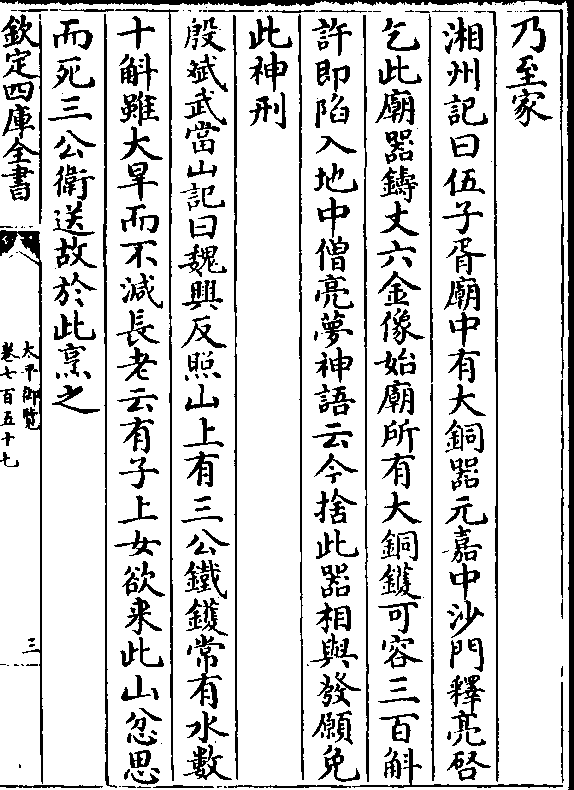 乃至家
湘州記曰伍子胥廟中有大銅器元嘉中沙門釋亮啓
乞此廟器鑄丈六金像始廟所有大銅鑊可容三百斛
許即陷入地中僧亮夢神語云今捨此器相與發願免
此神刑
殷斌武當山記曰魏興反照山上有三公鐵鑊常有水數
十斛雖大旱而不減長老云有子上女欲来此山忿思
而死三公衛送故於此烹之
欽定四庫全書
太平御覽
卷七百五十七
三